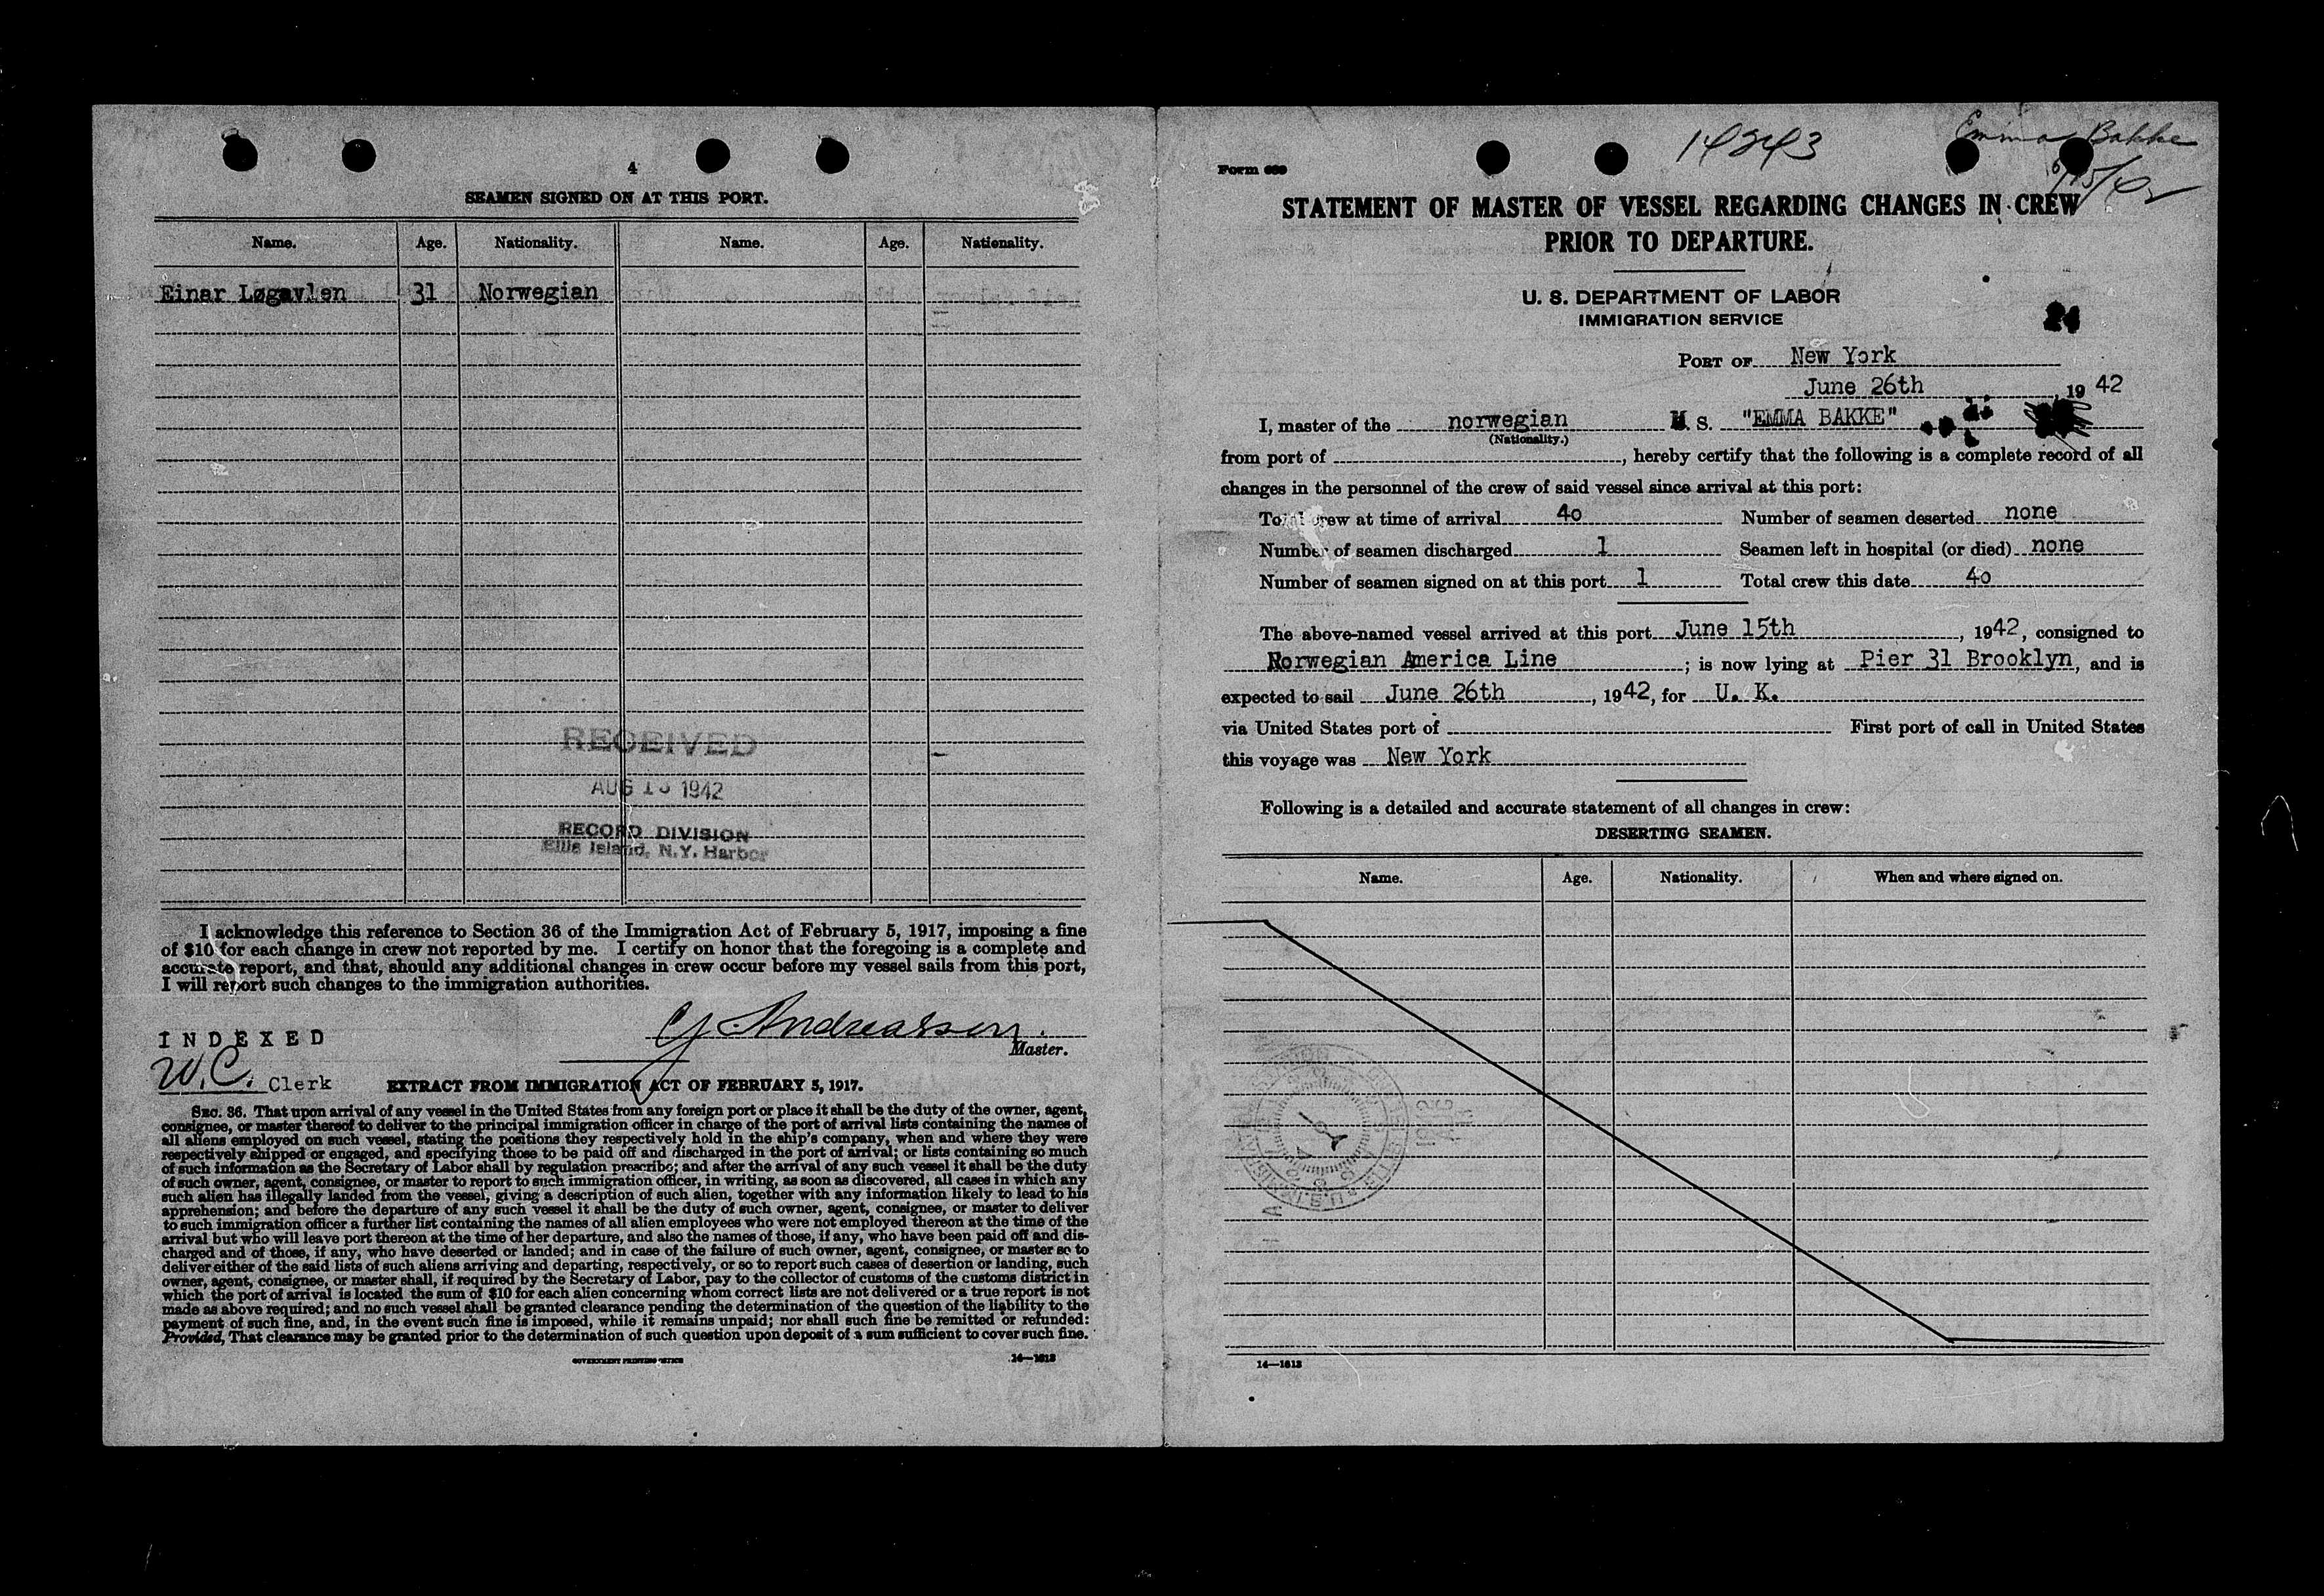 4
SEAMEN SIGNED ON AT THIS PORT.
Name. Age. Nationality. Name. Age. Nationality.
Einar Løgavlen 31 Norwegian
RECEIVED
AUG 1 1942
RECORD DIVISION
Ellis Island, N.Y. Harbor
I acknowledge this reference to Section 36 of the Immigration Act of February 5, 1917, imposing a fine
of $10 for each change in crew not reported by me. I certify on honor that the foregoing is a complete and
accurate report, and that, should any additional changes in crew occur before my vessel sails from this port,
I will report such changes to the immigration authorities.
Andreassen.
Master.
INDEXED
W.C. Clerk
EXTRACT FROM IMMIGRATION ACT OF FEBRUARY 5, 1917.
SEC. 36. That upon arrival of any vessel in the United States from any foreign port or place it shall be the duty of the owner, agent,
consignee, or master thereof to deliver to the principal immigration officer in charge of the port of arrival lists containing the names of
all aliens employed on such vessel, stating the positions they respectively hold in the ship's company, when and where they were
respectively shipped or engaged, and specifying those to be paid off and discharged in the port of arrival; or lists containing so much
of such information as the Secretary of Labor shall by regulation prescribe; and after the arrival of any such vessel it shall be the duty
of such owner, agent, consignee, or master to report to such immigration officer, in writing, as soon as discovered, all cases in which any
such alien has illegally landed from the vessel, giving a description of such alien, together with any information likely to lead to his
apprehension; and before the departure of any such vessel it shall be the duty of such owner, agent, consignee, or master to deliver
to such immigration officer a further list containing the names of all alien employees who were not employed thereon at the time of the
arrival but who will leave port thereon at the time of her departure, and also the names of those, if any, who have been paid off and dis-
charged and of those, if any, who have deserted or landed; and in case of the failure of such owner, agent, consignee, or master so to
deliver either of the said lists of such aliens arriving and departing, respectively, or so to report such cases of desertion or landing, such
owner, agent, consignee, or master shall, if required by the Secretary of Labor, pay to the collector of customs of the customs district in
which the port of arrival is located the sum of $10 for each alien concerning whom correct lists are not delivered or a true report is not
made as above required; and no such vessel shall be granted clearance pending the determination of the question of the liability to the
payment of such fine, and, in the event such fine is imposed, while it remains unpaid; nor shall such fine be remitted or refunded:
Provided, That clearance may be granted prior to the determination of such question upon deposit of a sum sufficient to cover such fine.
GOVERNMENT PRINTING OFFICE 14—1613
14243 Emma Bakke
6/15/42
Form 689
STATEMENT OF MASTER OF VESSEL REGARDING CHANGES IN CREW
PRIOR TO DEPARTURE.
U. S. DEPARTMENT OF LABOR
IMMIGRATION SERVICE
PORT OF New York
June 26th, 1942
I, master of the norwegian M. S. "EMMA BAKKE"
(Nationality.)
from port of , hereby certify that the following is a complete record of all
changes in the personnel of the crew of said vessel since arrival at this port:
Total crew at time of arrival 40 Number of seamen deserted none
Number of seamen discharged 1 Seamen left in hospital (or died) none
Number of seamen signed on at this port 1 Total crew this date 40
The above-named vessel arrived at this port June 15th, 1942, consigned to
Norwegian America Line; is now lying at Pier 31 Brooklyn, and is
expected to sail June 26th, 1942, for U. K.
via United States port of First port of call in United States
this voyage was New York
Following is a detailed and accurate statement of all changes in crew:
DESERTING SEAMEN.
Name. Age. Nationality. When and where signed on.
14—1613